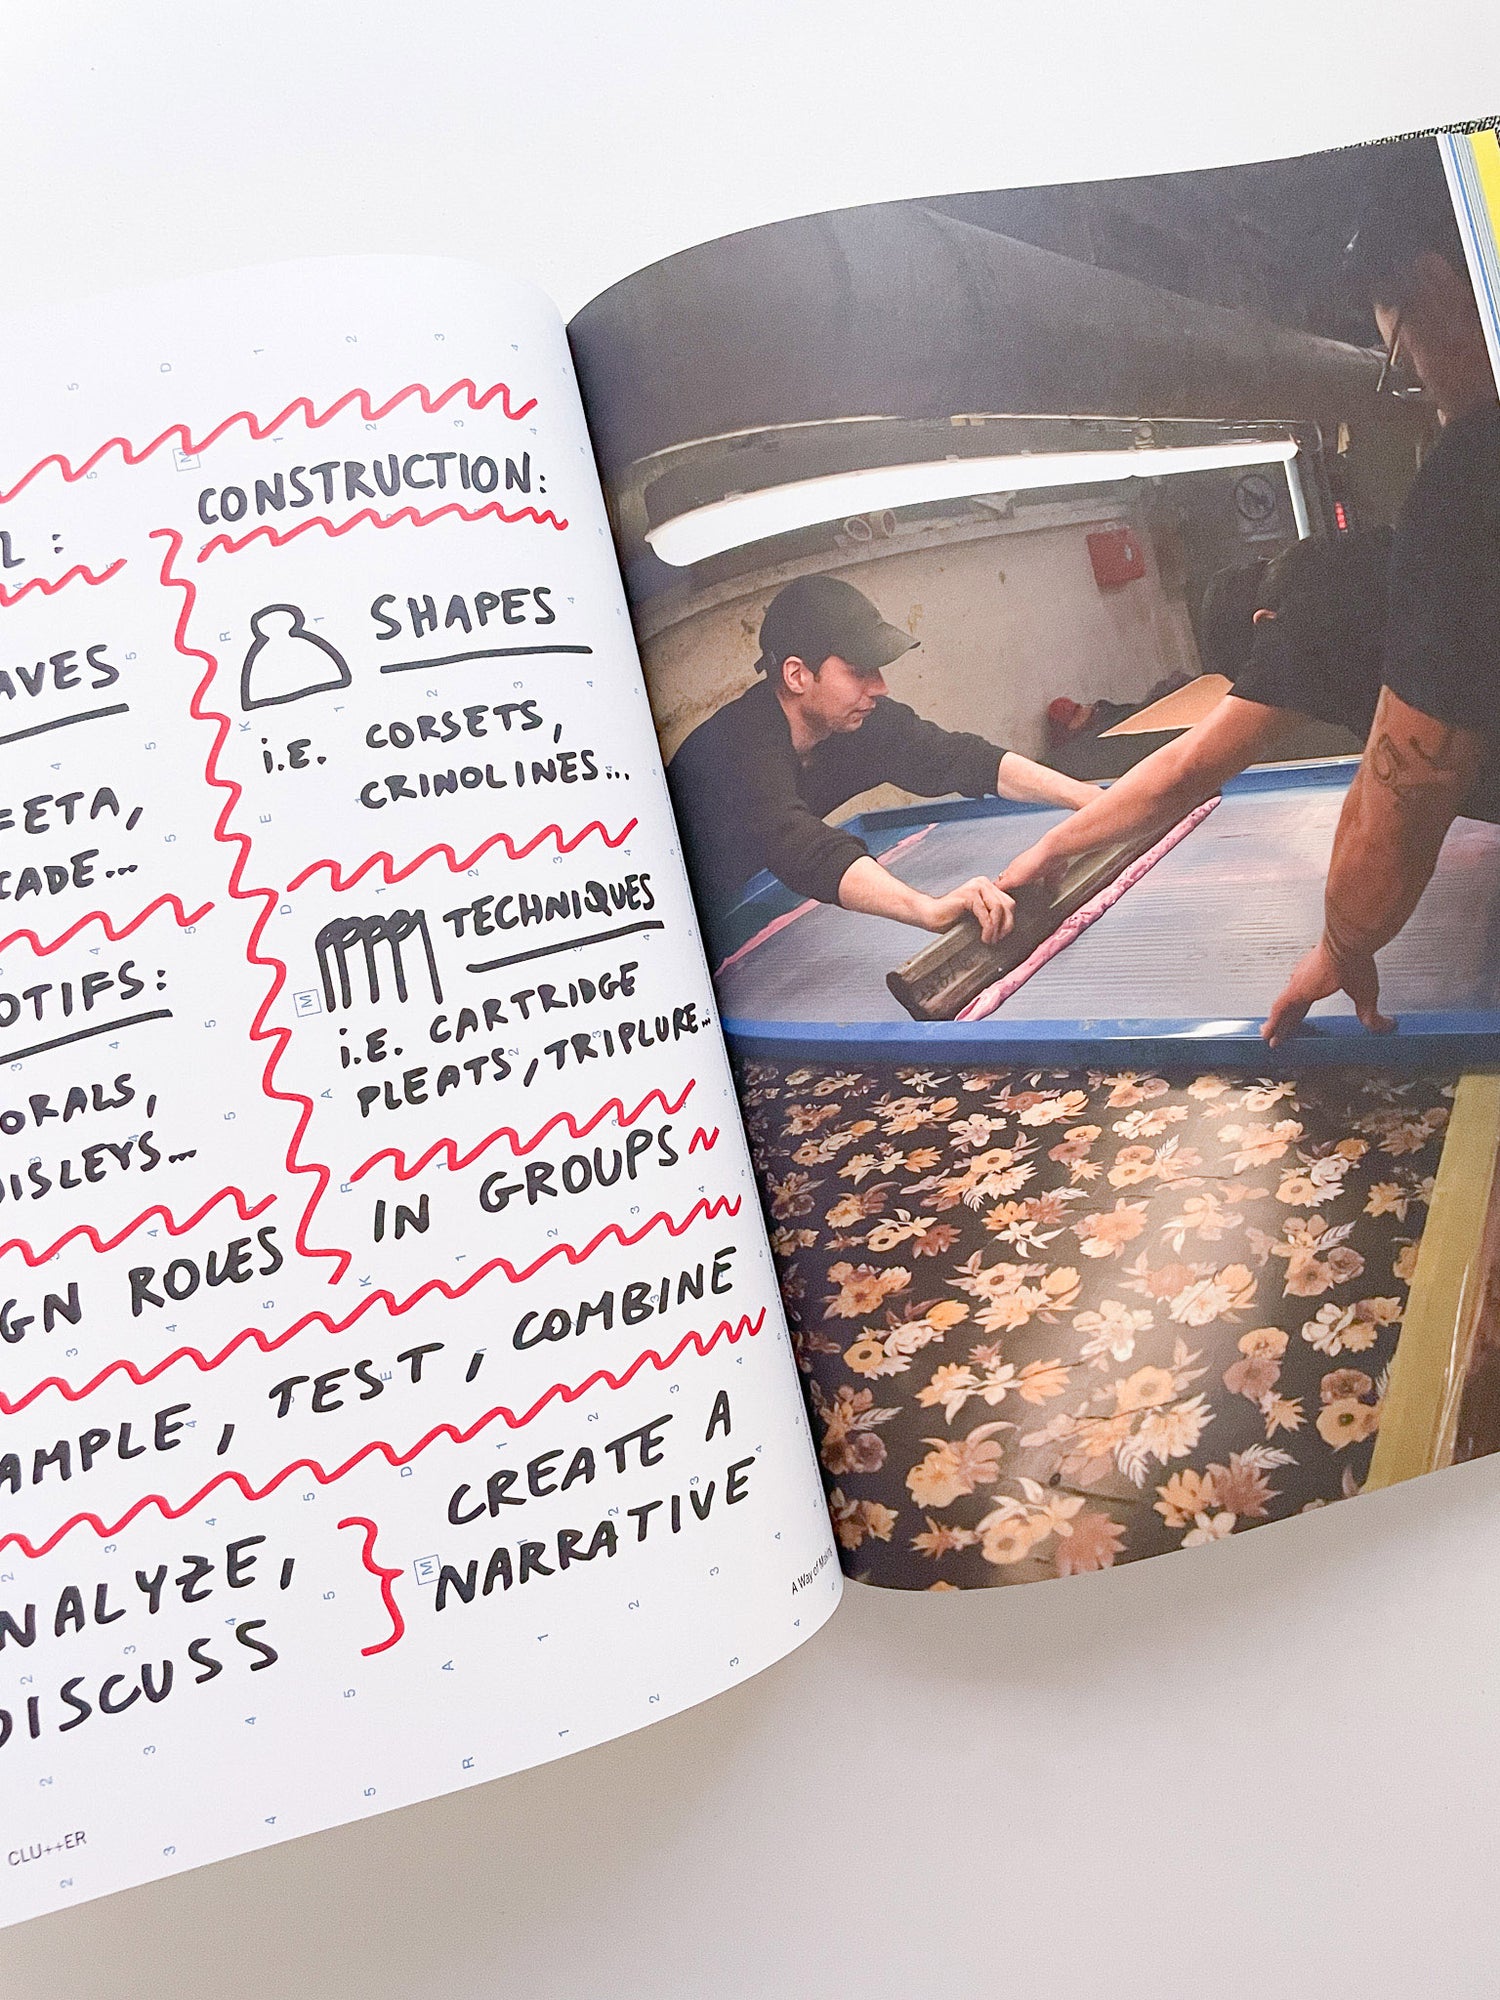 L:
AVES
FETA,
CADE...
OTIFS:
ORALS,
ISLEYS...
GN ROLES
CONSTRUCTION:
SHAPES
i.E. CORSETS,
CRINOLINES...
TECHNIQUES
i.E. CARTRIDGE
PLEATS, TRIPLURE...
IN GROUPS
AMPLE, TEST, COMBINE
NALYZE,
DISCUSS
CREATE A
NARRATIVE
CLU++ER
A Way of